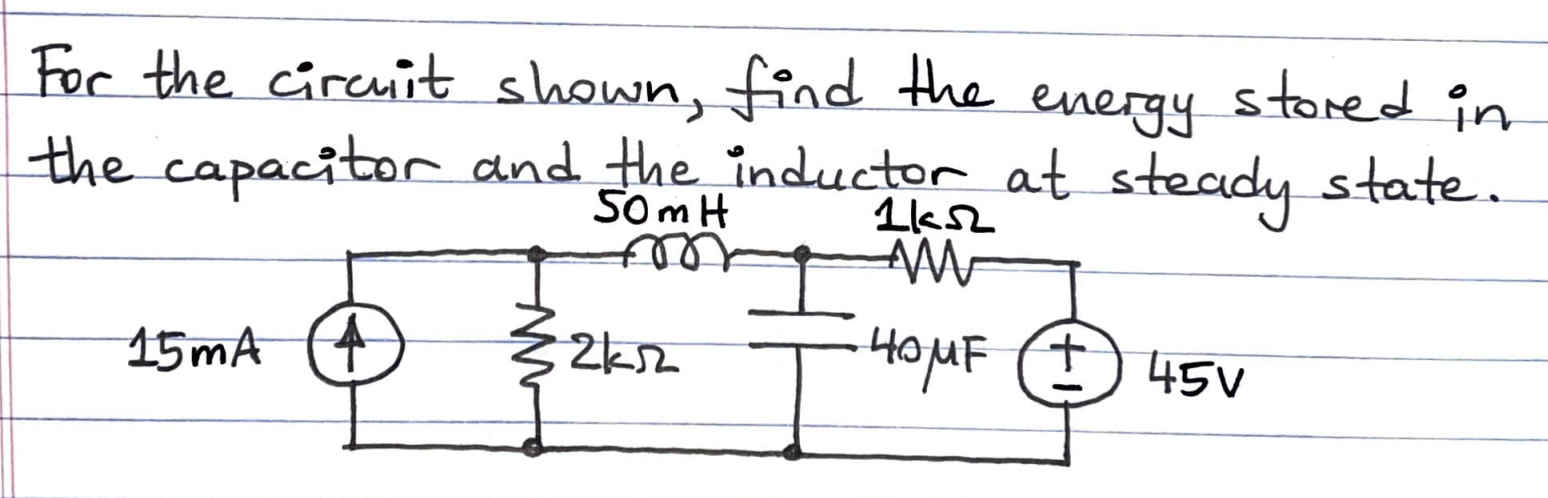 For the circuit shown, find the energy stored in
the capacitor and the inductor at steady state.
50mH 1kΩ
15mA 2kΩ 40μF + - 45V